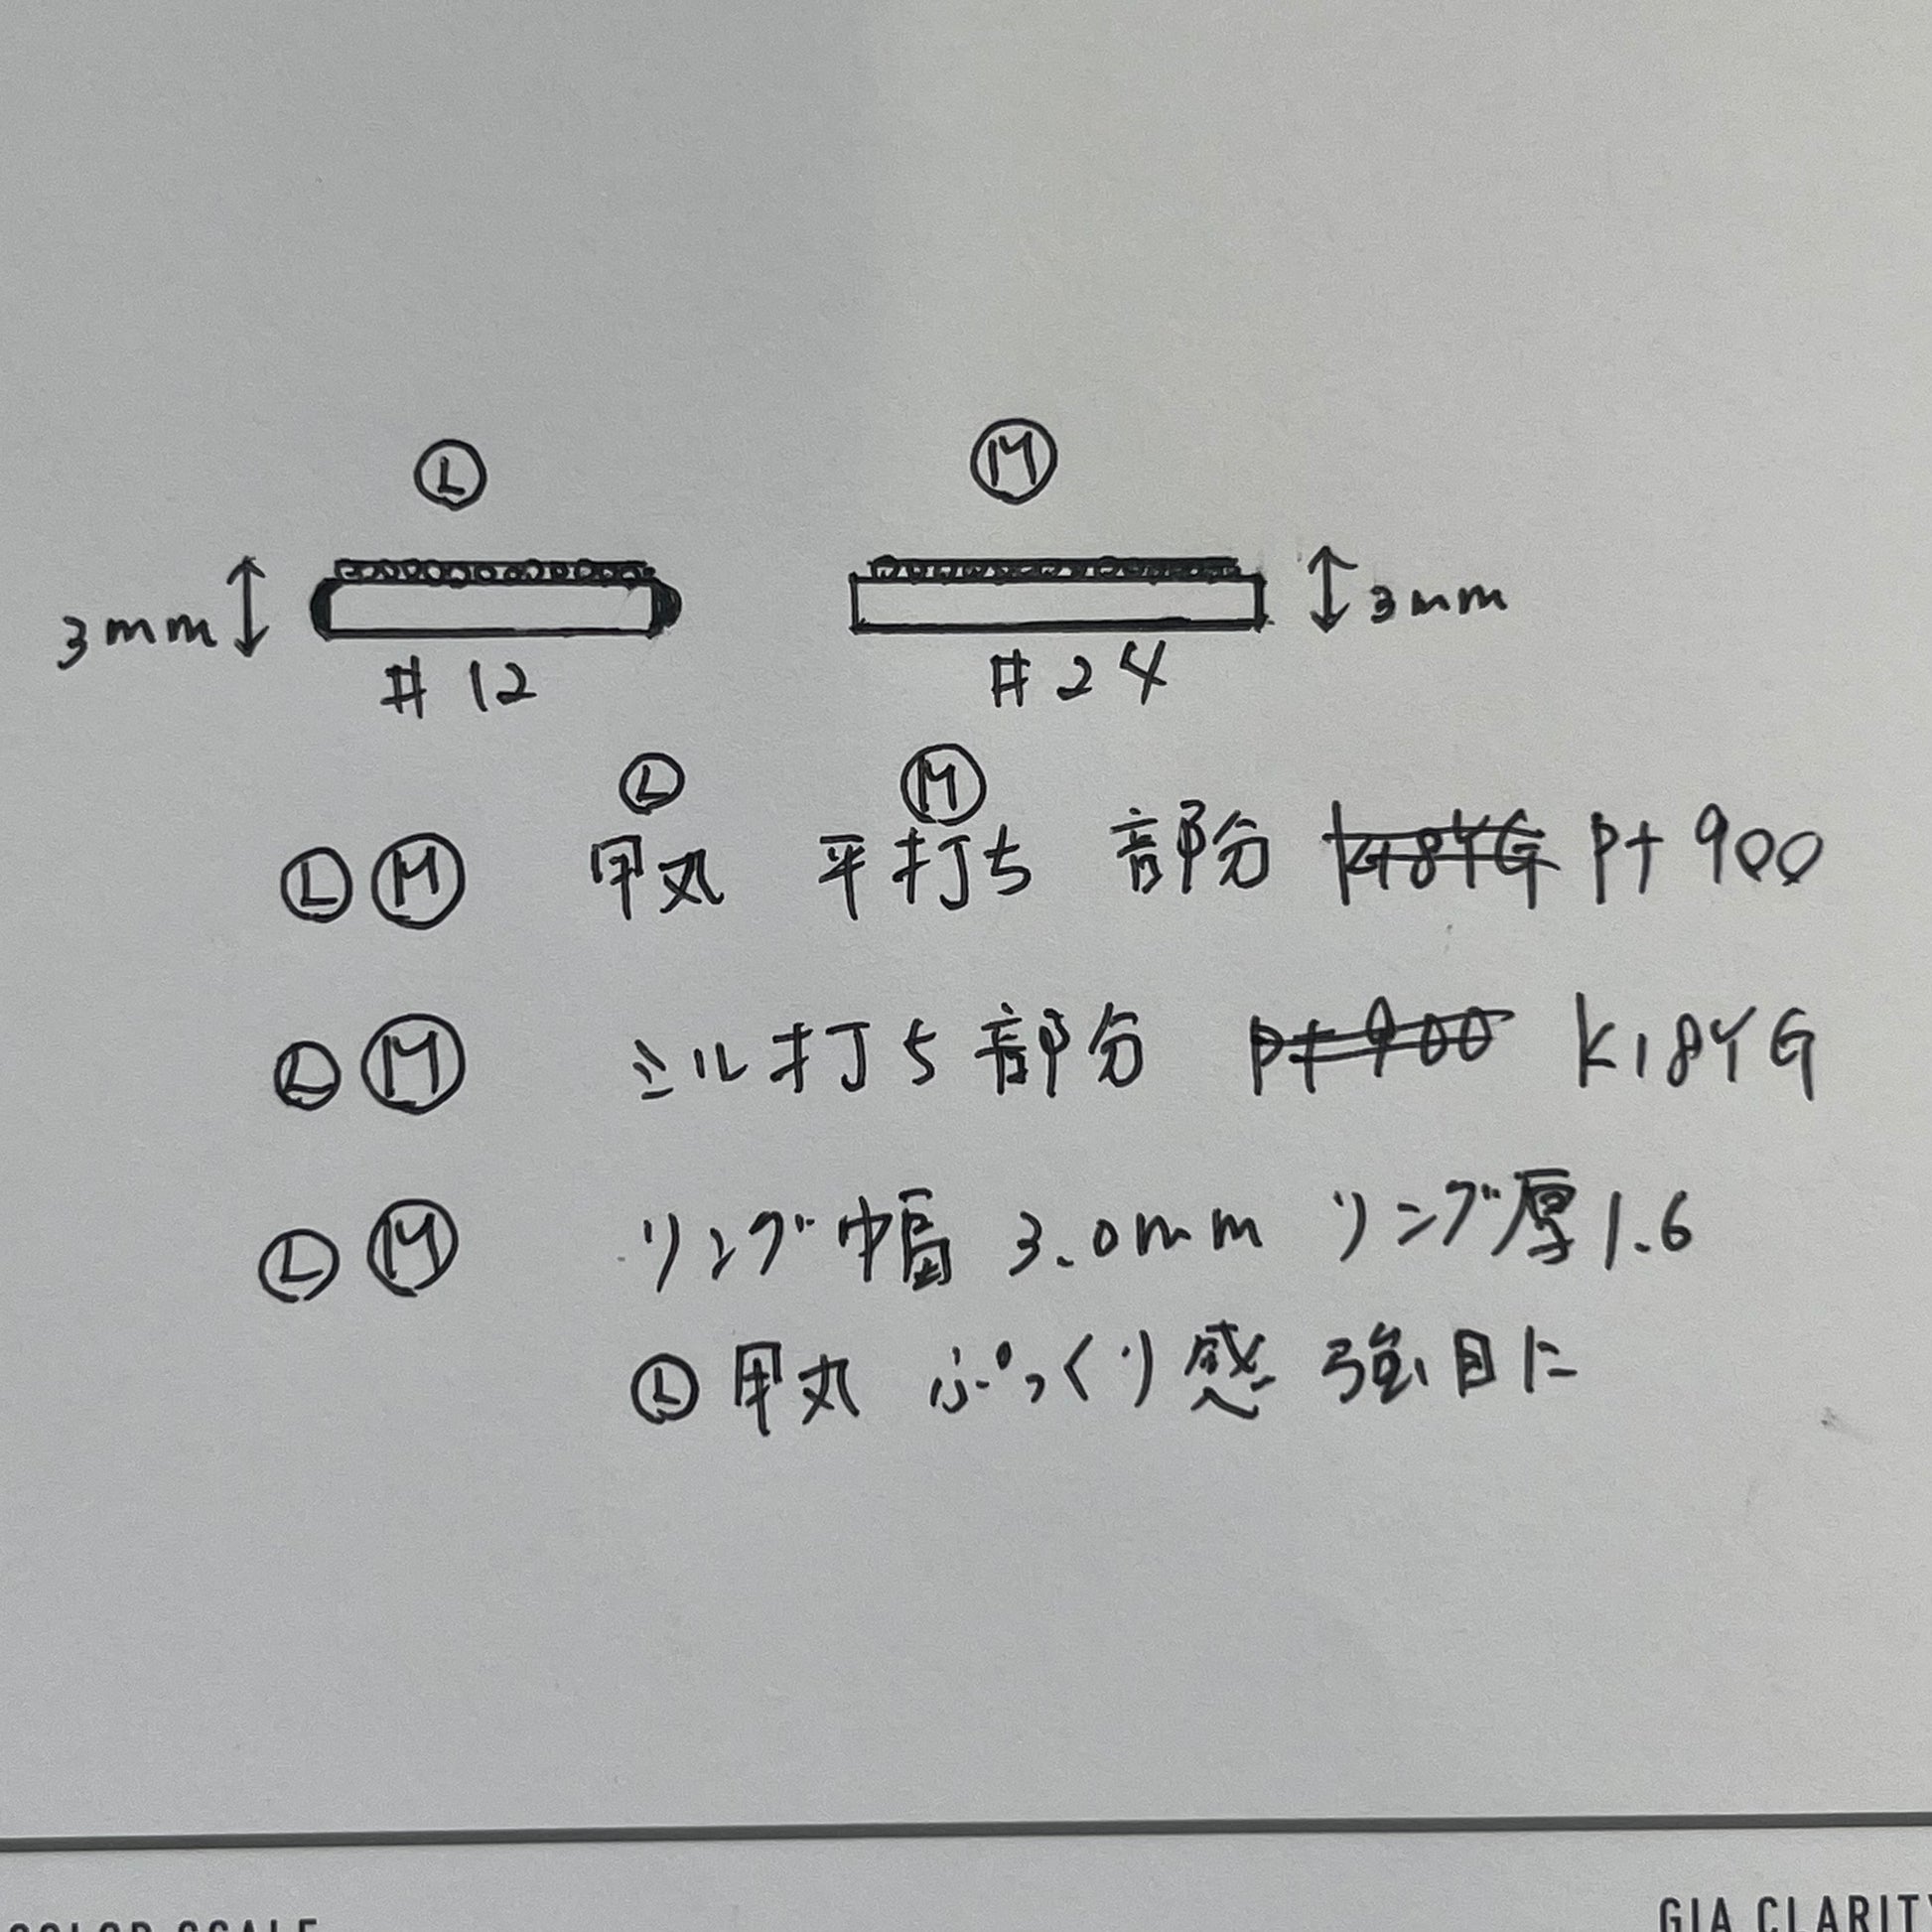 Ⓛ Ⓜ
3mm 3mm
#12 #24
Ⓛ Ⓜ
Ⓛ Ⓜ 甲丸 平打ち 部分 K18YG Pt900
Ⓛ Ⓜ ミル打ち部分 Pt900 K18YG
Ⓛ Ⓜ リング巾幅 3.0mm リング厚1.6
Ⓛ 甲丸 ぷっくり感 強目に
COLOR SCALE GIA CLARITY